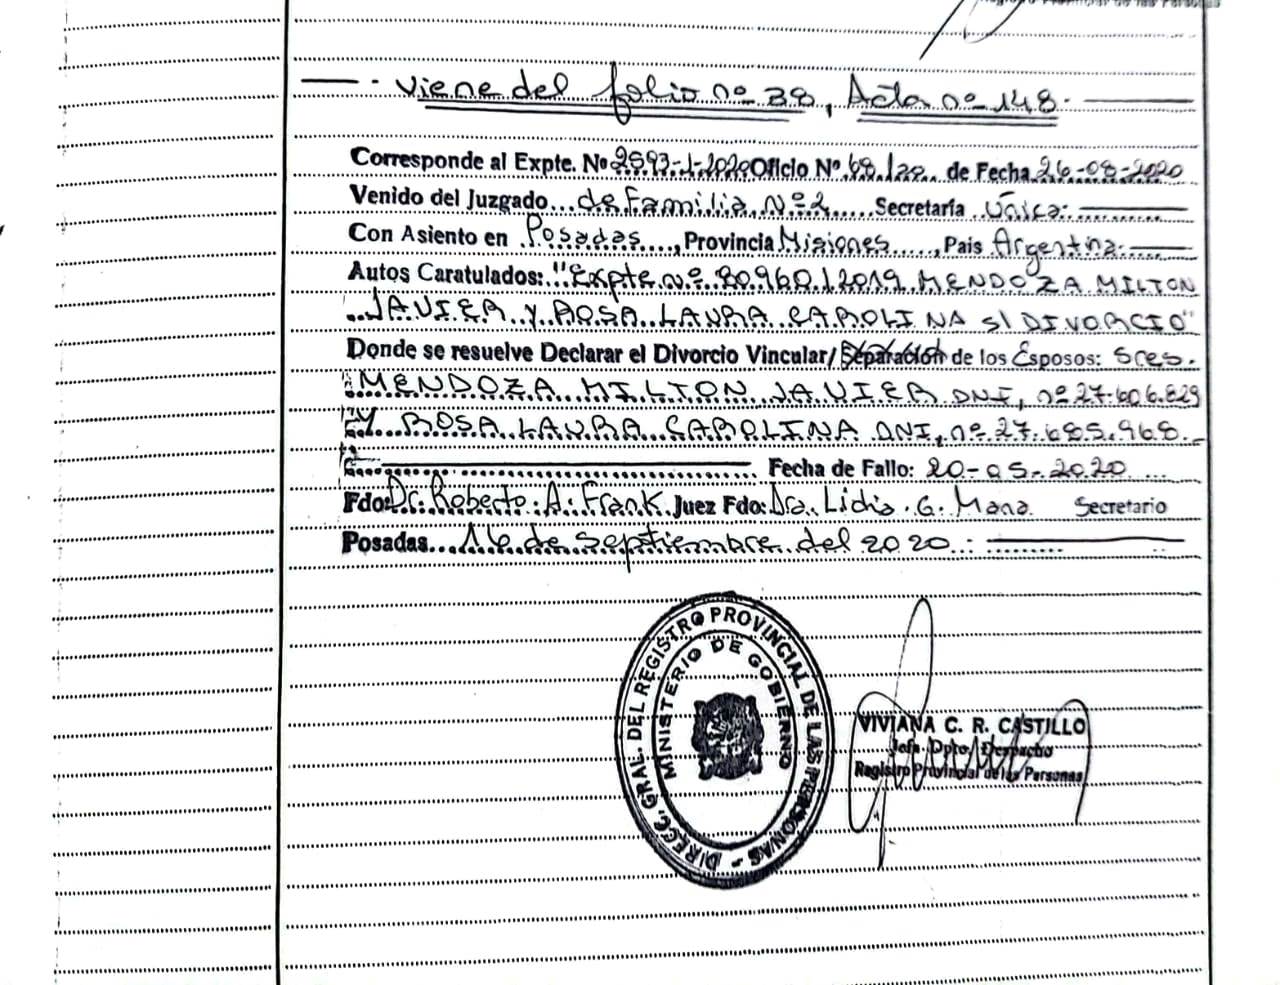 viene del folio nº 38, Acta nº 148.
Corresponde al Expte. Nº 2593-1-2020 Oficio Nº 68/20 de Fecha 26-08-2020
Venido del Juzgado de Familia Nº 2 Secretaría Única.
Con Asiento en Posadas, Provincia Misiones, Pais Argentina.
Autos Caratulados: "Expte nº 80960/2019 MENDOZA MILTON
JAVIER Y ROSA LAURA CAROLINA S/DIVORCIO"
Donde se resuelve Declarar el Divorcio Vincular/Separación de los Esposos: Sres.
MENDOZA MILTON JAVIER DNI, nº 27.606.829
Y ROSA LAURA CAROLINA DNI, nº 27.685.968.
Fecha de Fallo: 20-05-2020
Fdo: Dr. Roberto A. Frank Juez Fdo: Dra. Lidia G. Mana Secretario
Posadas 16 de Septiembre del 2020.
DIRECC. GRAL. DEL REGISTRO PROVINCIAL DE LAS PERSONAS -
MINISTERIO DE GOBIERNO
VIVIANA C. R. CASTILLO
Jefa Dpto. Despacho
Registro Provincial de las Personas